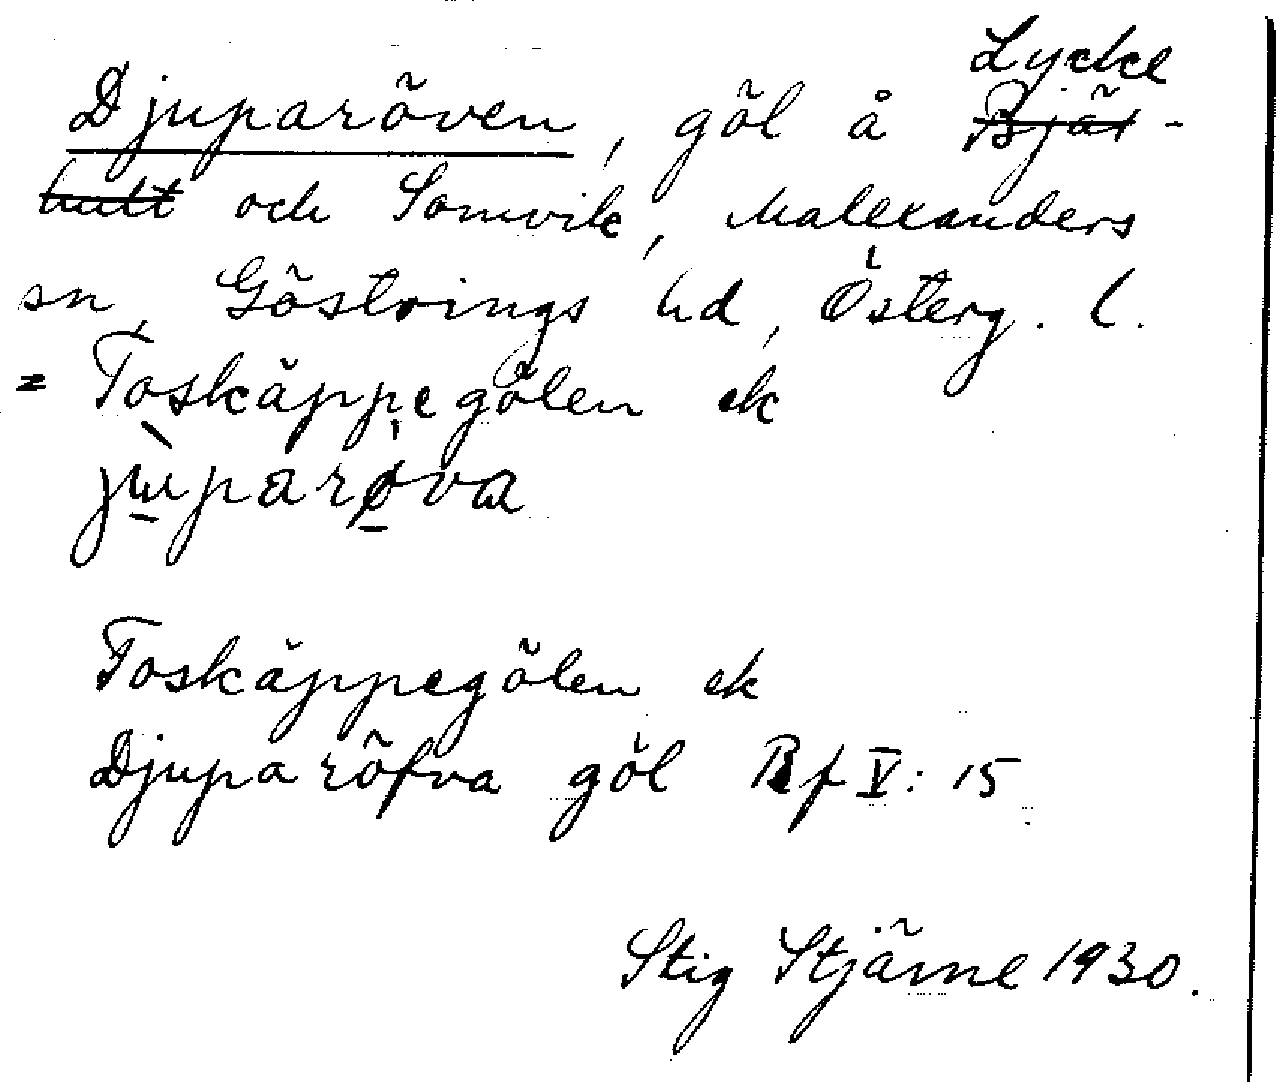 Lycke
Djuparöven, göl å Bjär-
hult och Somvik, Malexanders
sn, Göstrings hd, Österg. l.
= Toskäppegölen ek
jɯparøva
Toskäppegölen ek
Djupa röfva göl Rf V: 15
Stig Stjärne 1930.